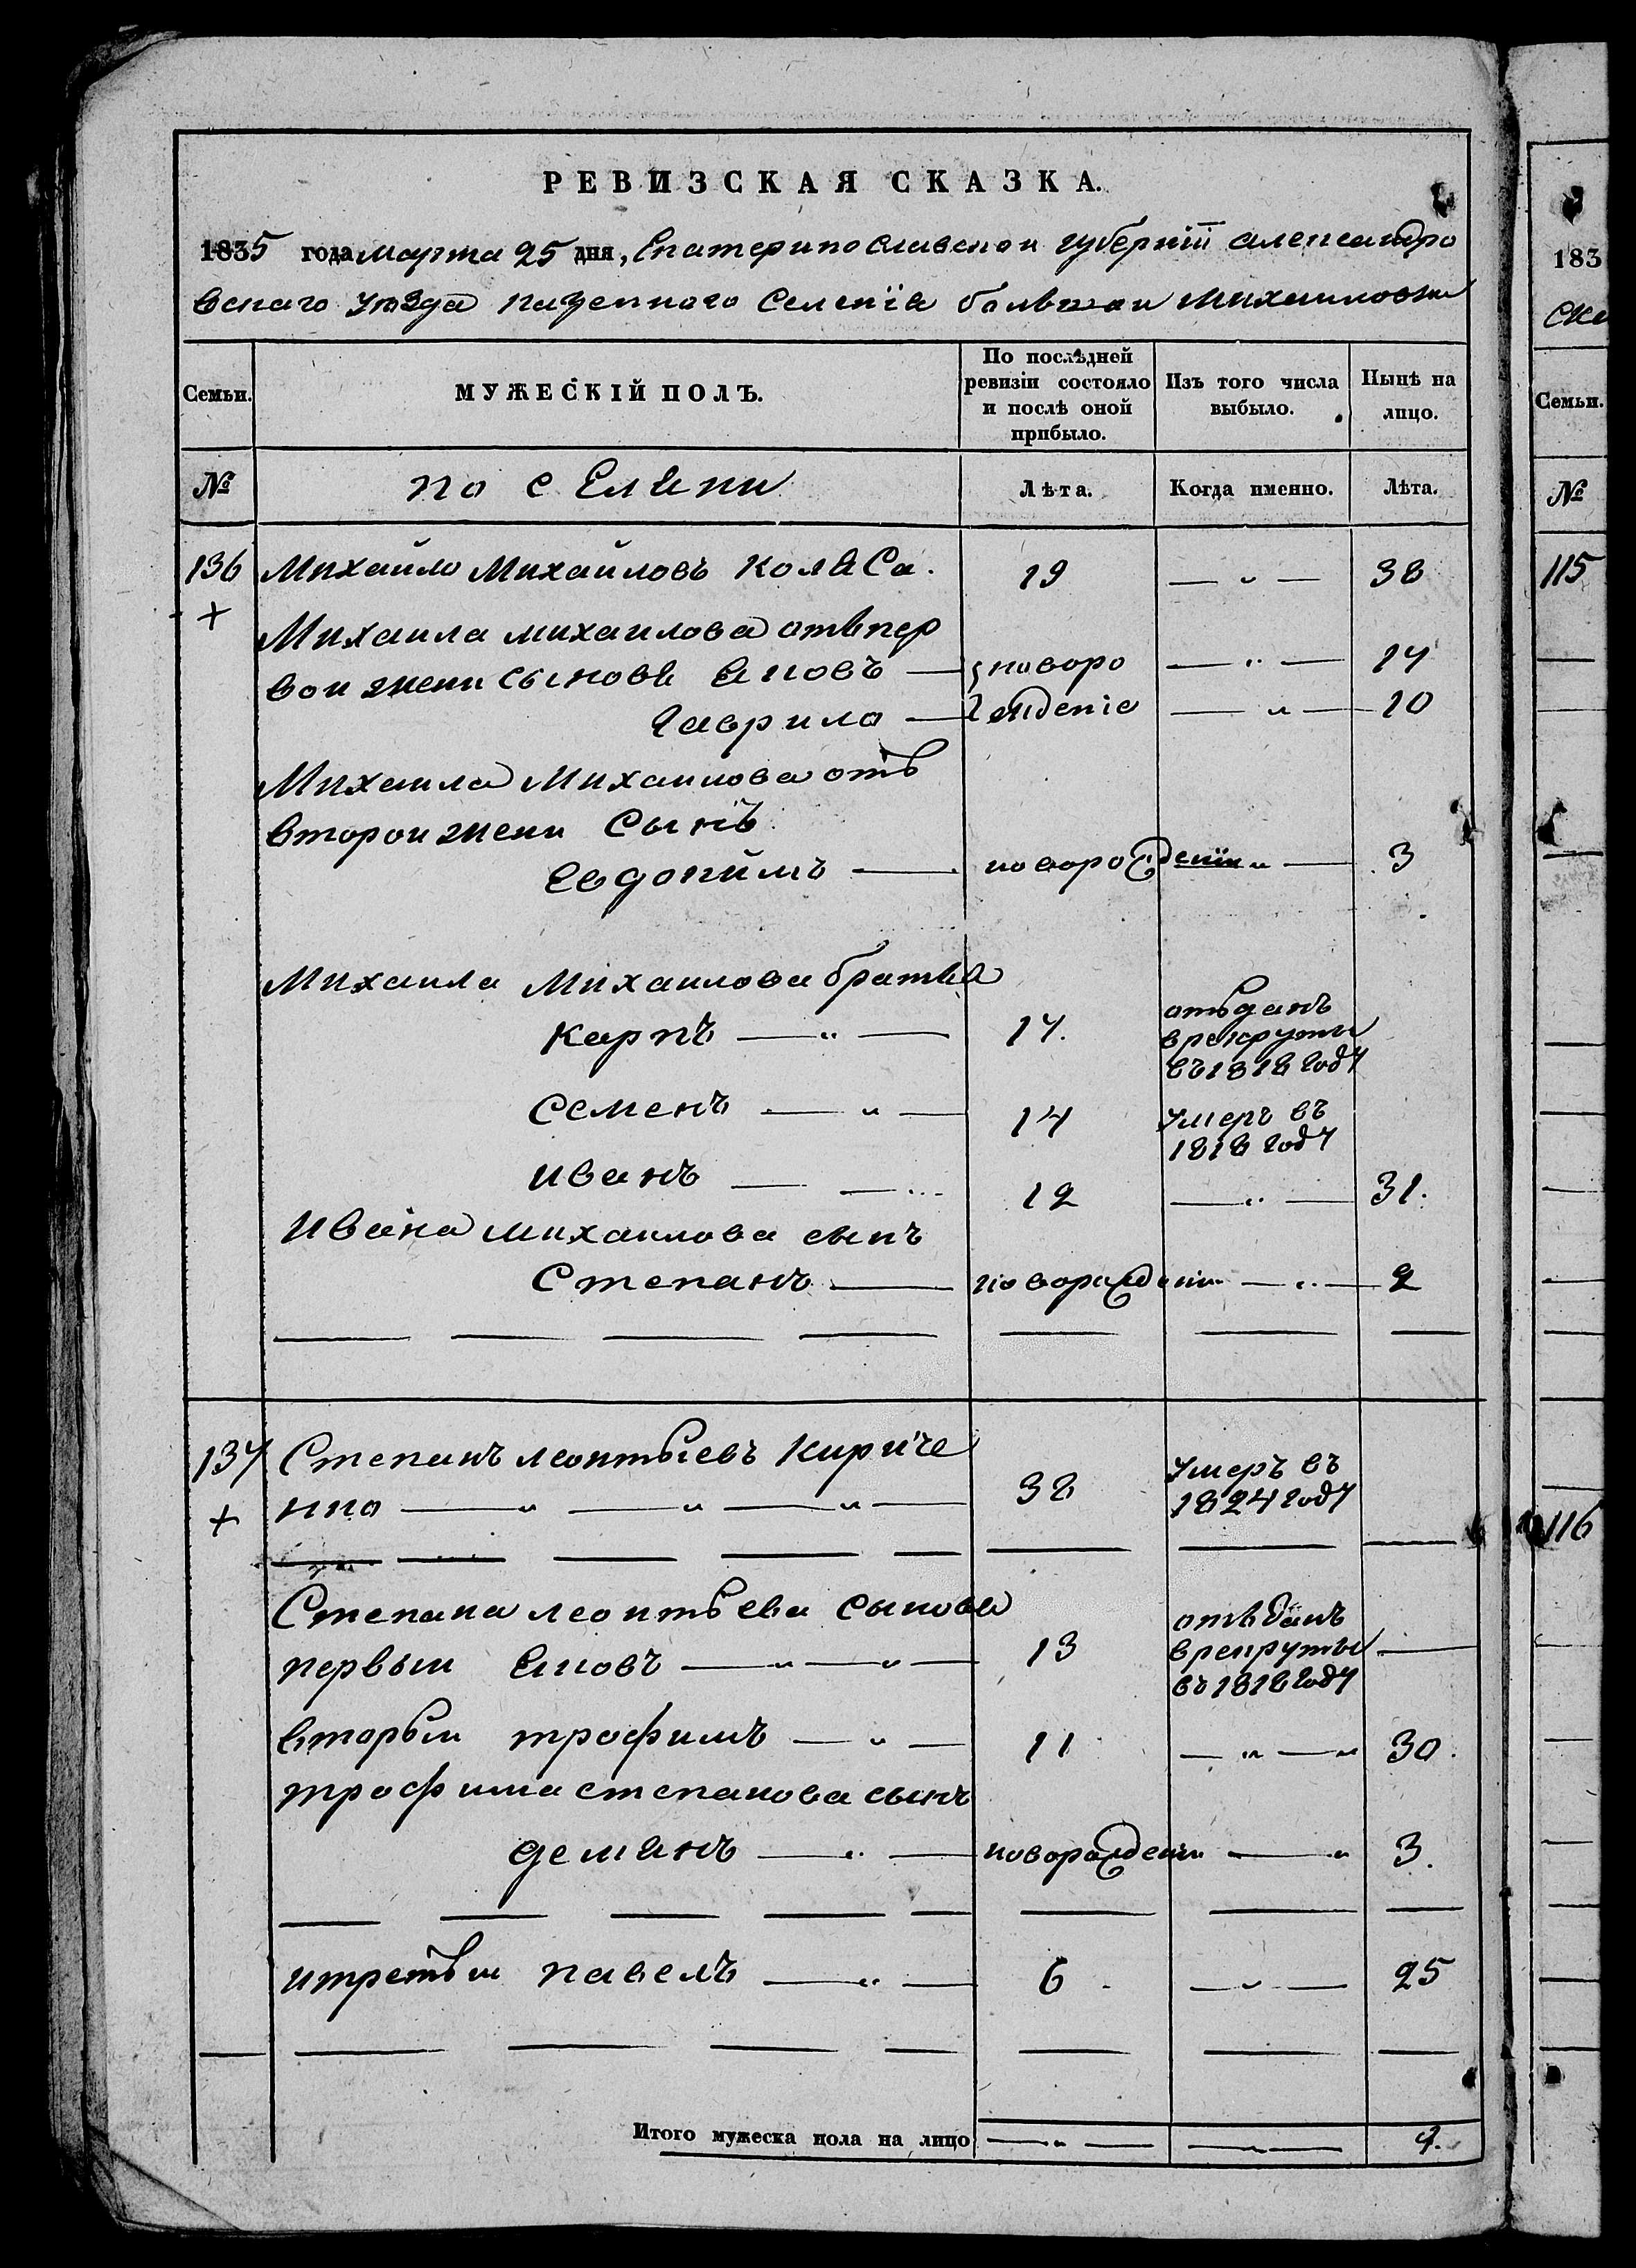 РЕВИЗСКАЯ СКАЗКА.
1835 года марта 25 дня, Екатеринославской губернiи александро
вскаго уѣзда казенного селенiя большой михайловки
Семьи. МУЖЕСКIЙ ПОЛЪ. По послѣдней ревизiи состояло и послѣ оной прибыло. Изъ того числа выбыло. Нынѣ на лицо.
№ поселяни Лѣта. Когда именно. Лѣта.
136 Михайло Михайловъ Коляса. 19 — " — 38
+
Михаила михаилова отъпер
вои жени сыновя Яковъ — новоро — " — 14
гаврило — ждение — " — 10
Михаила Михаилова отъ
второи жени Сынъ
Евдокимъ — новорождении " — 3
Михаила Михаилова братья
карпъ — " — 17. отъданъ
врекруты
въ 1818 году
семенъ — " — 14 умеръ въ
1818 году
иванъ — — 12 — " — 31.
Ивана михаилова сынъ
Степанъ — новорождении — " — 2
137 Степанъ леонтьевъ Кириче
нко — " — " — " — 38 умеръ въ
1824 году
+
Степана леонтьева сыновя
первыи Яковъ — " — " — 13 отъданъ
врекруты —
въ 1818 году
вторыи трофимъ — " — 11 — " — " 30.
трофима степанова сынъ
демянъ — " — новорождении — " 3.
итретьи павелъ — " — 6 — " — 25
Итого мужеска пола на лицо — " — — " — 9.
183
ска
Семьи.
№
115
116